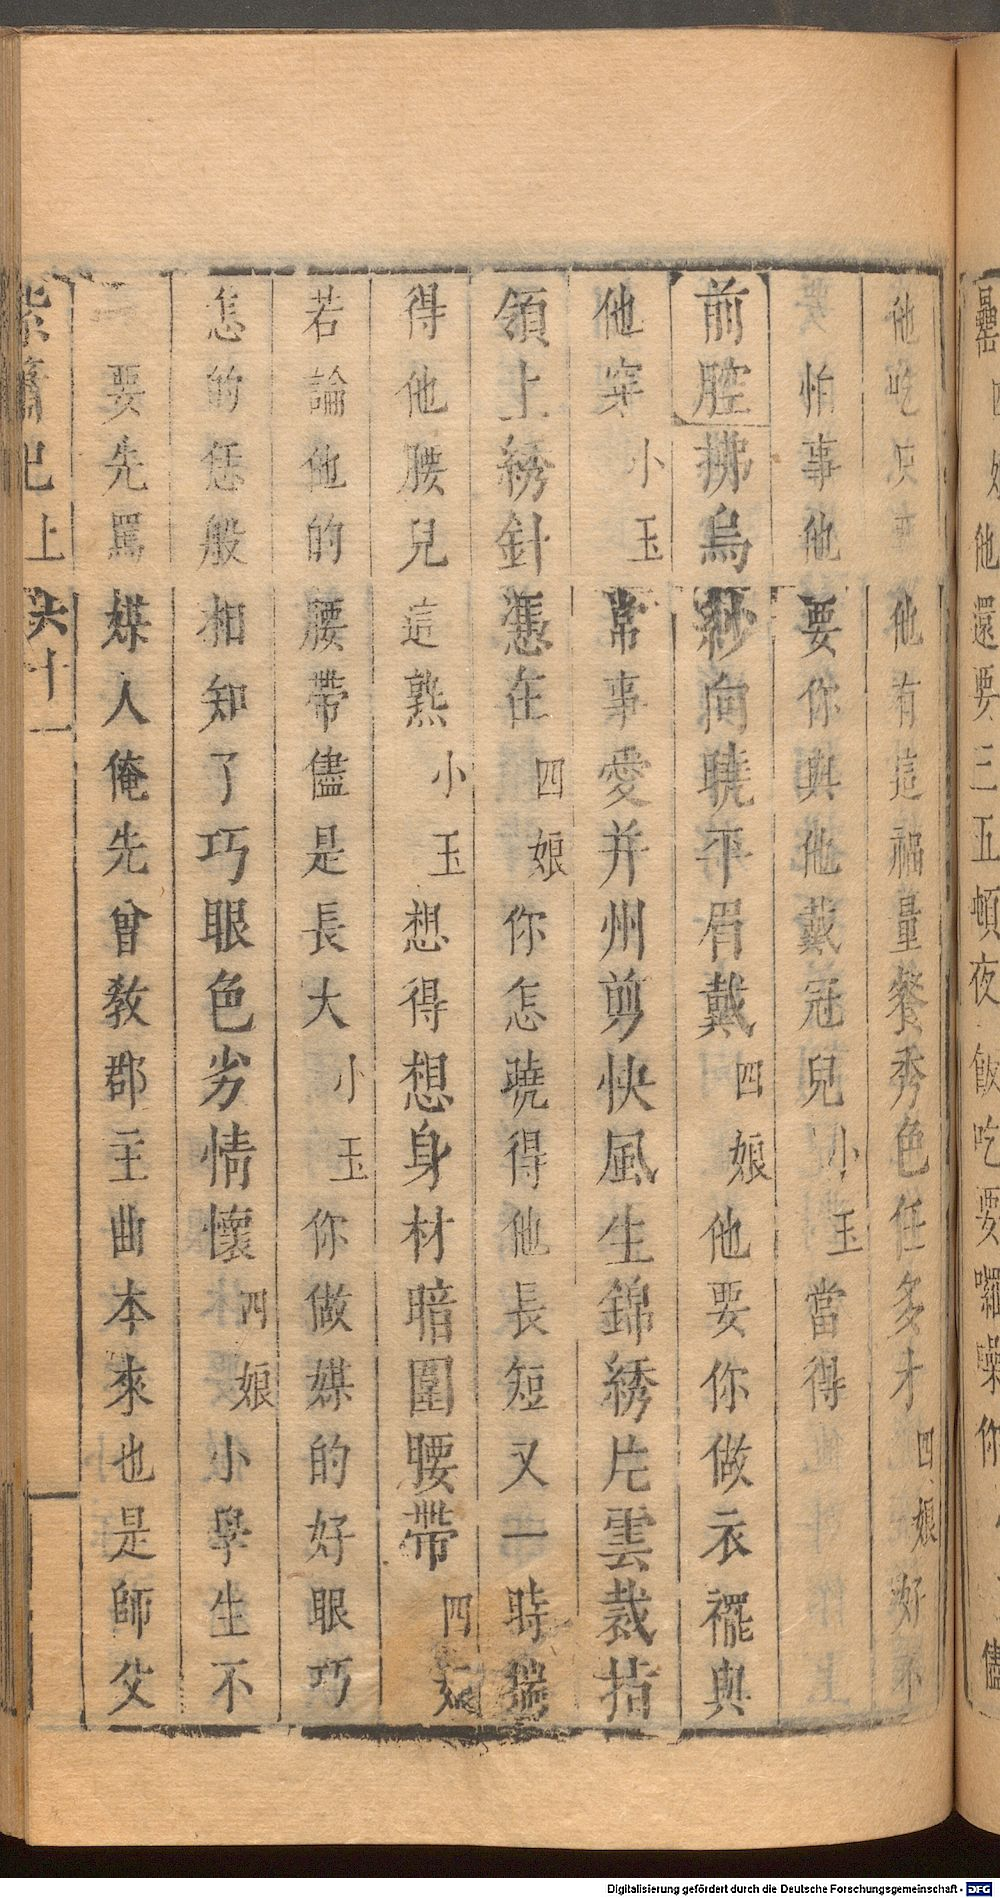 還要三五頓夜飯吃要囉噪你
他吃頂 他有這福量餐秀色任多才四娘好不
怕事他要你與他戴冠兒小玉當得
前腔拂烏紗向曉平眉戴四娘他要你做衣襬與
他穿小玉常事愛并州剪快風生錦綉片雲裁措
領上綉針憑在四娘你怎曉得他長短又一時揣
得他腰兒這熟小玉想得想身材暗圍腰帶四娘
若論他的腰帶儘是長大小玉你做媒的好眼巧
怎的恁般相知了巧眼色劣情懷四娘小學生不
要先罵媒人俺先曾教郡主曲本來也是師父
紫簫记上 六十一
Digitalisierung gefördert durch die Deutsche Forschungsgemeinschaft - DFG